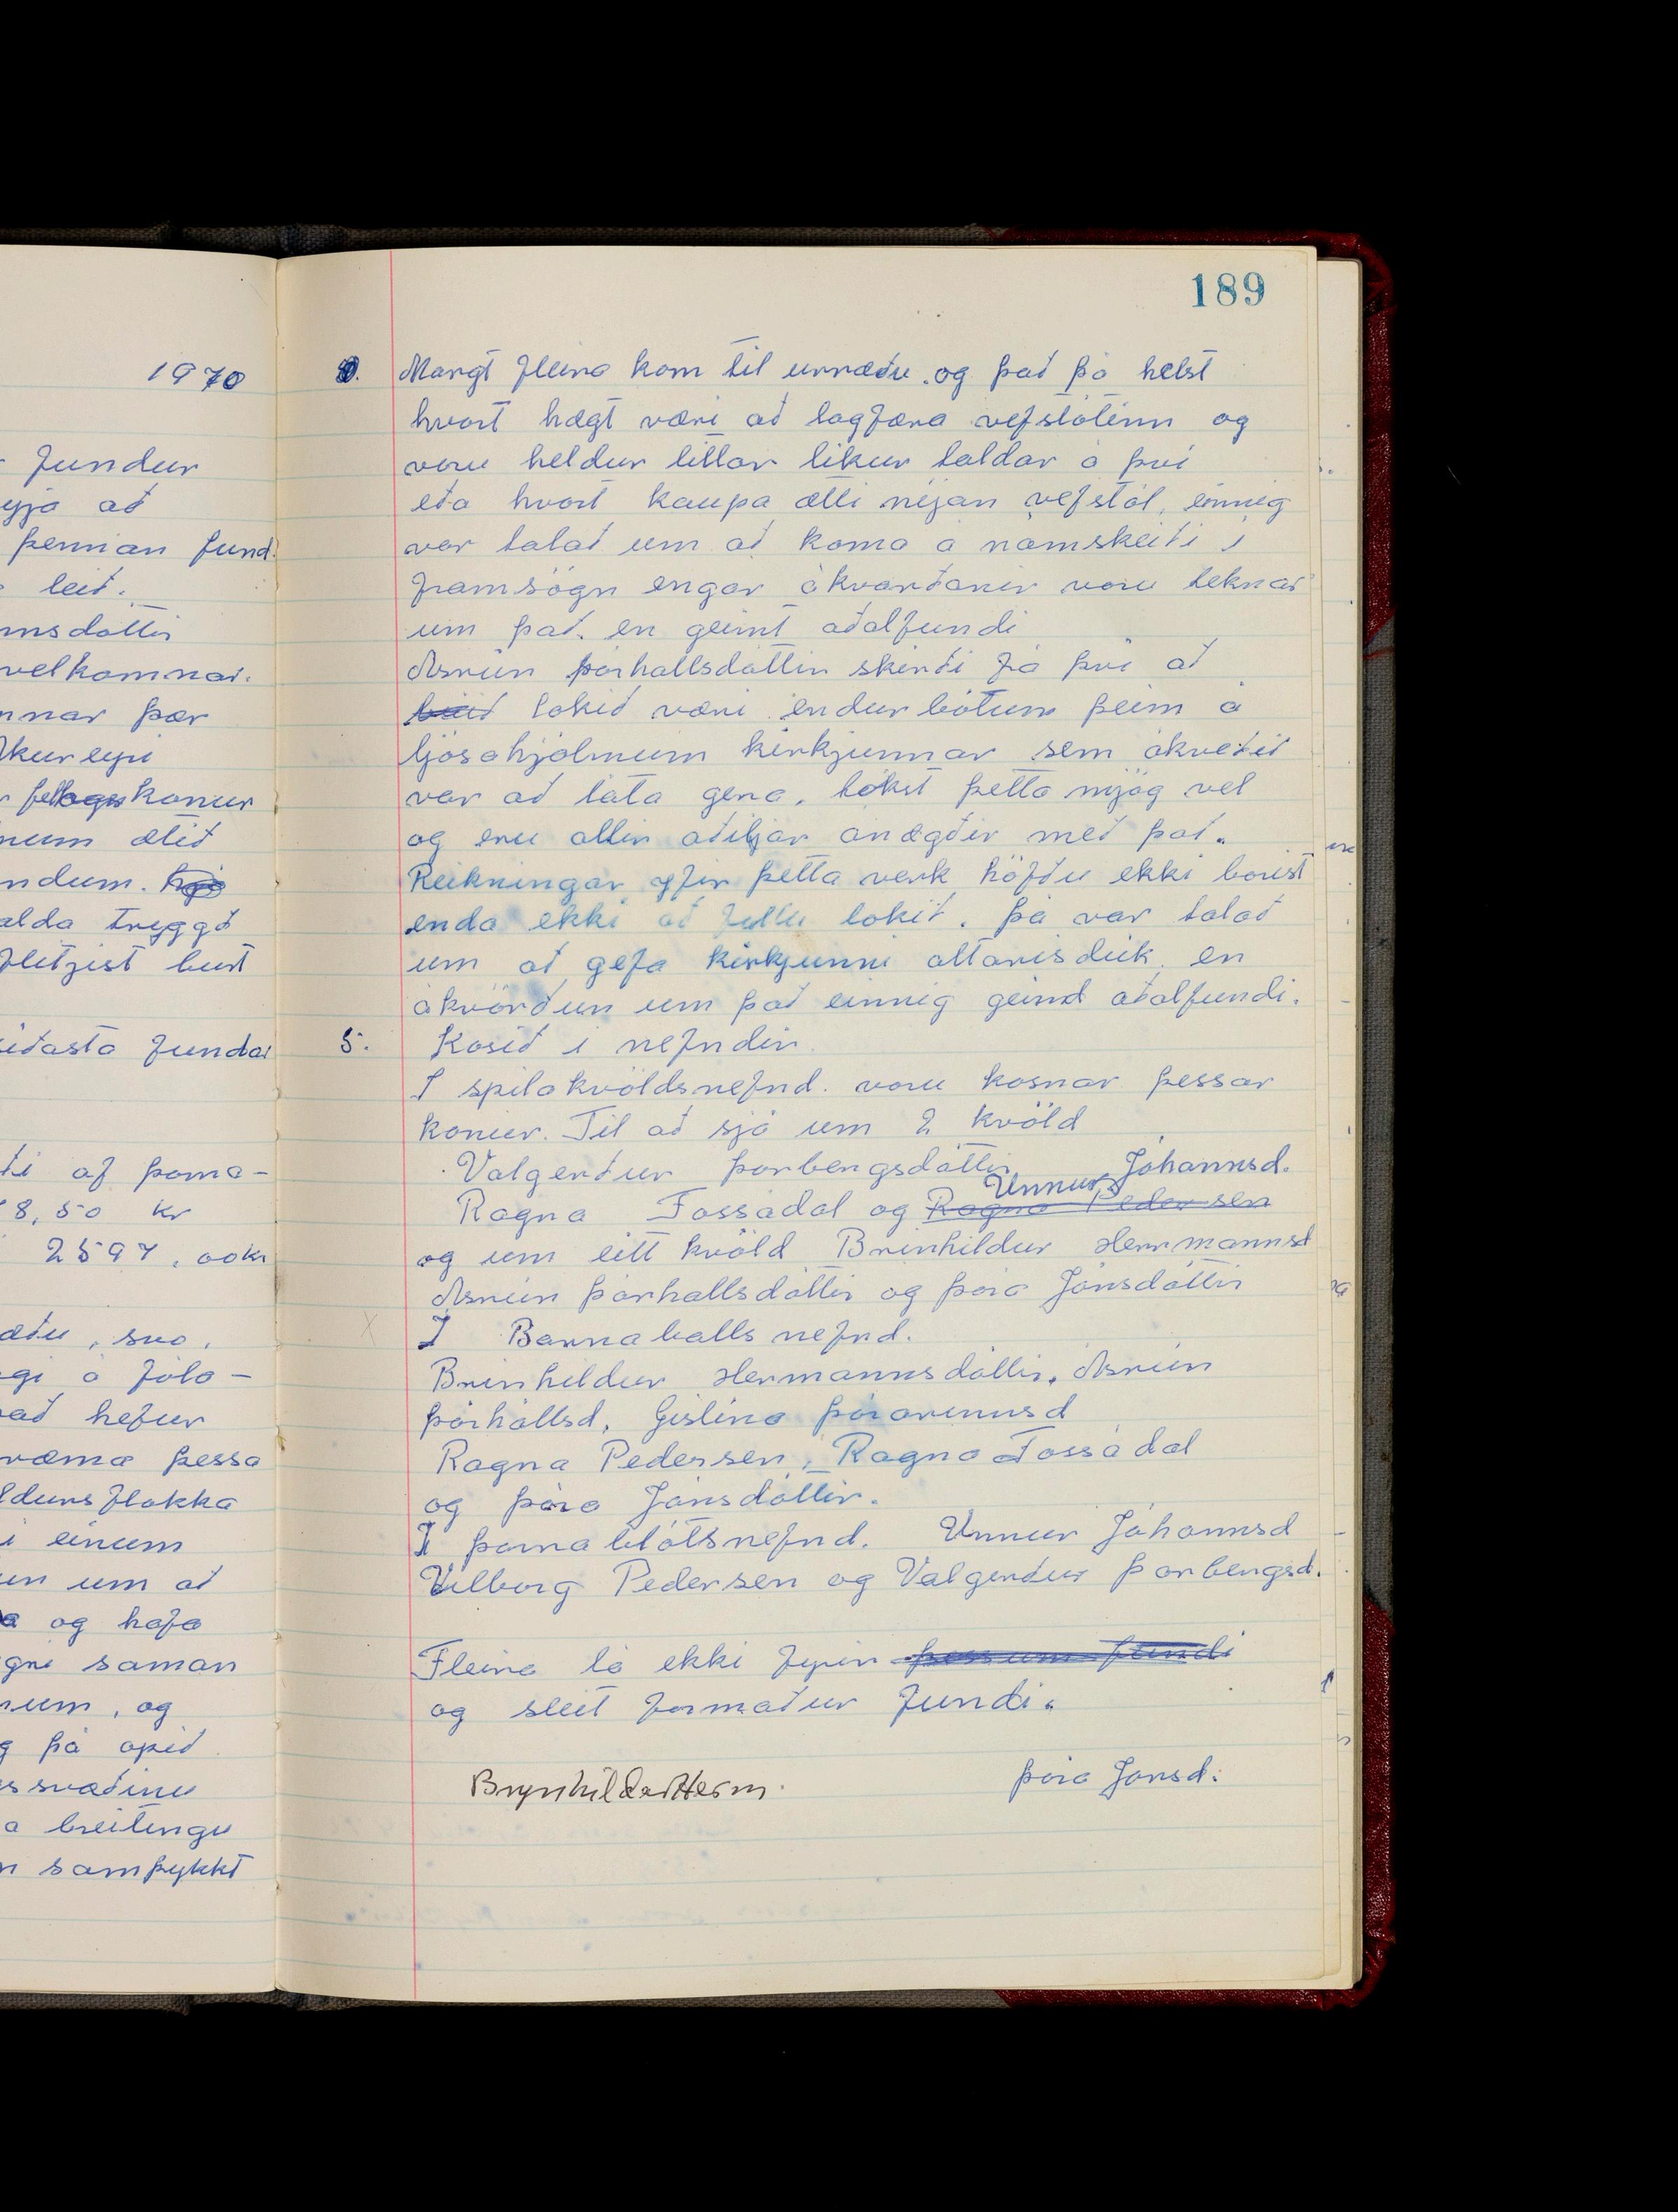 1970
fundur
yja að
þennan fund.
leið.
velkomnar.
nnar þær
konur
num ætíð
ndum.
alda tryggð
síðasta fundar
ti af þorra-
8,50 kr
2597,00 kr
ætu, svo,
gi á Jóla-
að hefur
ræma þessa
flokka
í einum
en um að
og hafa
saman
num, og
g þá opið
a breitingu
n samþykkt
189
Margt fleira kom til umræðu. og það þá helst
hvort hægt væri að lagfæra vefstólinn og
voru heldur litlar líkur taldar á því
eða hvort kaupa ætti nýjan vefstól, einnig
var talað um að koma á námskeiði í
framsögn engar ákvarðanir voru teknar
um það. en geimt aðalfundi
Ásrún Þórhallsdóttir skírði frá því að
búið lokið væri endurbótum þeim á
ljósahjálmum kirkjunnar sem ákveðið
var að láta gera, tókst þetta mjög vel
og eru allir aðiljar ánægðir með það.
Reikningar yfir þetta verk höfðu ekki borist
enda ekki að fullu lokið. Þá var talað
um að gefa kirkjunni altarisdúk, en
ákvörðun um það einnig geimd aðalfundi.
5. Kosið í nefndir.
Í spilakvöldsnefnd. voru kosnar þessar
konur. Til að sjá um 2 kvöld
Valgerður Þorbergsdóttir
Unnur Jóhannsd.
Ragna Fossádal og Ragna Pedersen
og um eitt kvöld Brinhildur Herrmannsd
Ásrún Þórhallsdóttir og Þóra Jónsdóttir
Í Barnaballs nefnd.
Brinhildur Hermannsdóttir, Ásrún
Þórhallsd, Gíslína Þórarinnsd
Ragna Pedersen, Ragna Fossádal
og Þóra Jónsdóttir.
Í þorrablótsnefnd. Unnur Jóhannsd
Vilborg Pedersen og Valgerður Þorbergsd.
Fleira lá ekki fyrir þessum fundi
og sleit formaður fundi.
Brynhildur Herm.
Þóra Jónsd: